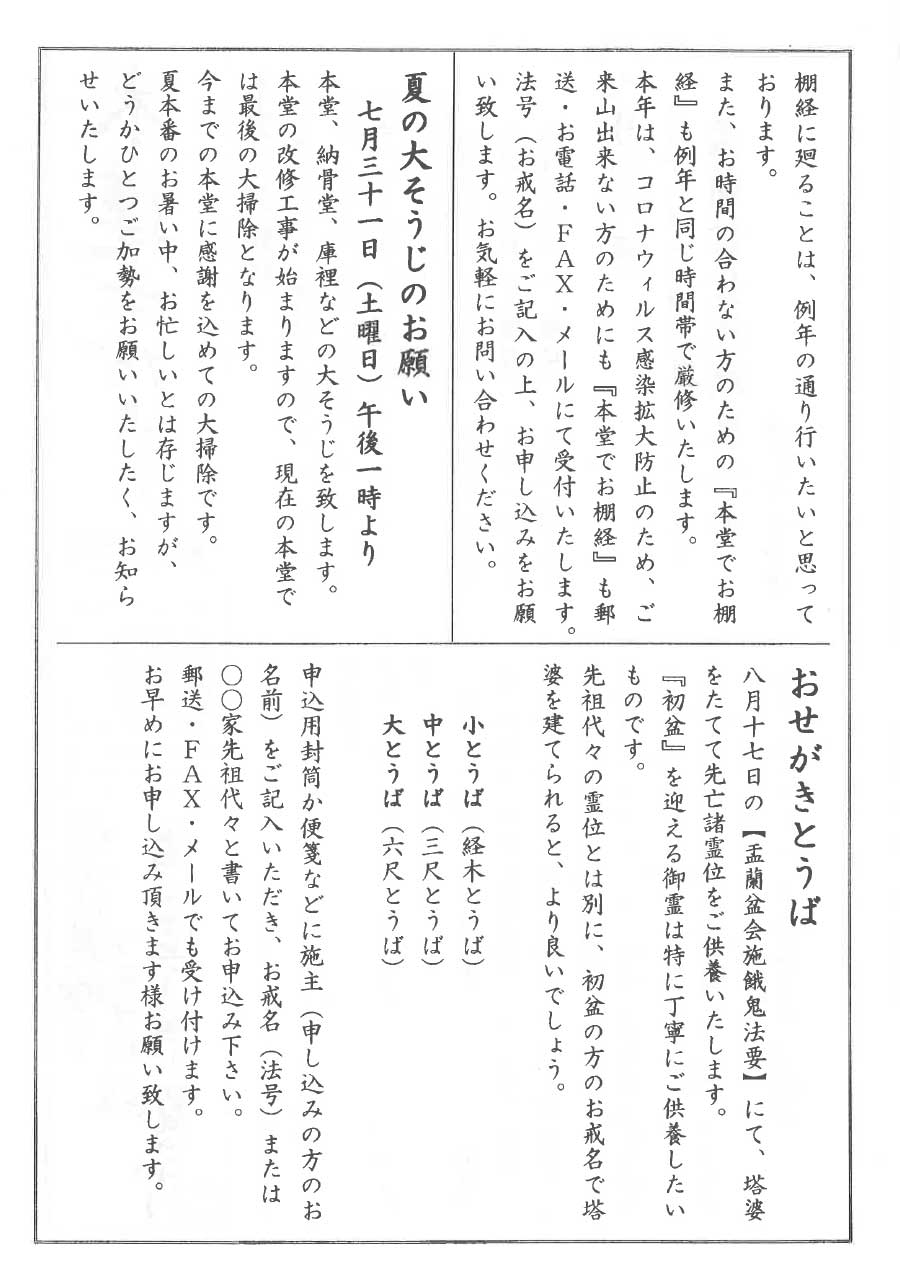 棚経に廻ることは、例年の通り行いたいと思って
おります。
また、お時間の合わない方のための『本堂でお棚
経』も例年と同じ時間帯で厳修いたします。
本年は、コロナウィルス感染拡大防止のため、ご
来山出来ない方のためにも『本堂でお棚経』も郵
送・お電話・ＦＡＸ・メールにて受付いたします。
法号（お戒名）をご記入の上、お申し込みをお願
い致します。お気軽にお問い合わせください。
夏の大そうじのお願い
七月三十一日（土曜日）午後一時より
本堂、納骨堂、庫裡などの大そうじを致します。
本堂の改修工事が始まりますので、現在の本堂で
は最後の大掃除となります。
今までの本堂に感謝を込めての大掃除です。
夏本番のお暑い中、お忙しいとは存じますが、
どうかひとつご加勢をお願いいたしたく、お知ら
せいたします。
おせがきとうば
八月十七日の【盂蘭盆会施餓鬼法要】にて、塔婆
をたてて先亡諸霊位をご供養いたします。
『初盆』を迎える御霊は特に丁寧にご供養したい
ものです。
先祖代々の霊位とは別に、初盆の方のお戒名で塔
婆を建てられると、より良いでしょう。
小とうば（経木とうば）
中とうば（三尺とうば）
大とうば（六尺とうば）
申込用封筒か便箋などに施主（申し込みの方のお
名前）をご記入いただき、お戒名（法号）または
〇〇家先祖代々と書いてお申込み下さい。
郵送・ＦＡＸ・メールでも受け付けます。
お早めにお申し込み頂きます様お願い致します。